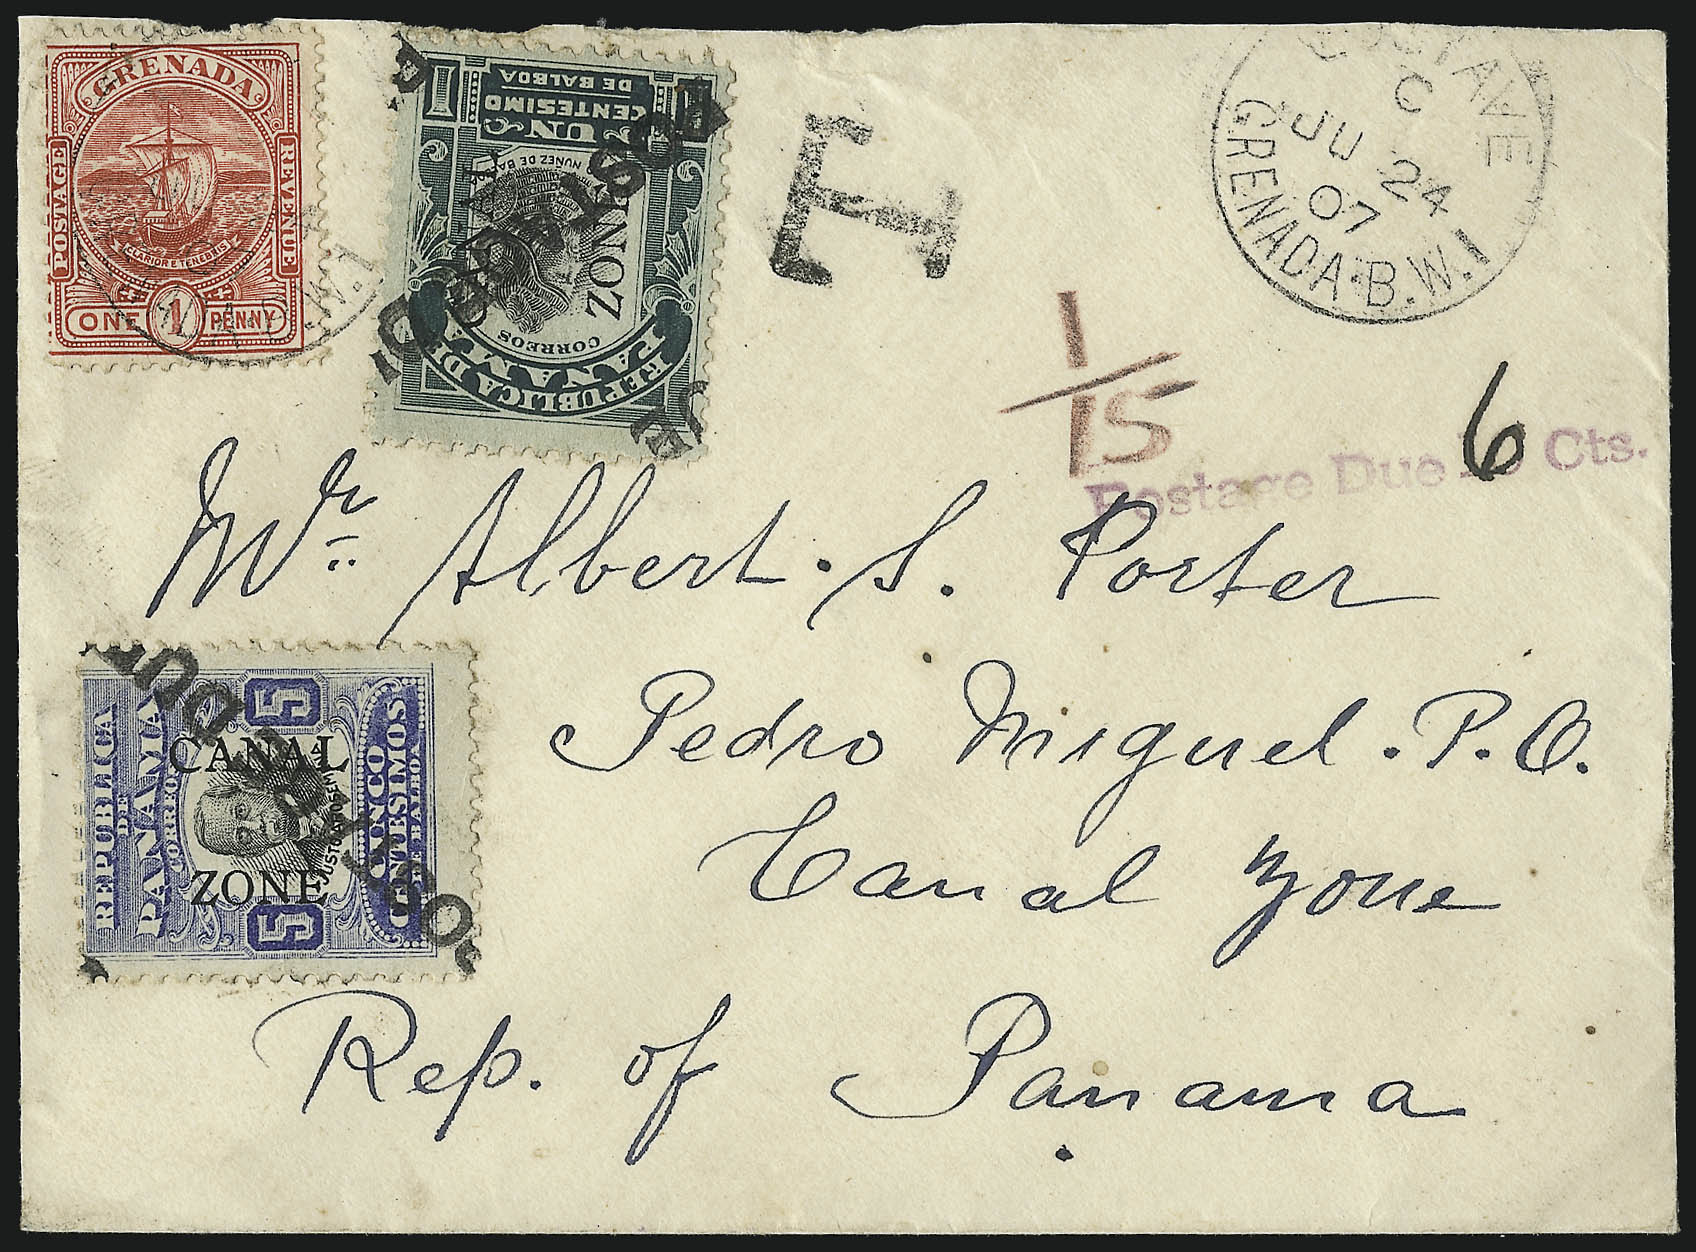 GRENADA
POSTAGE
REVENUE
CLARIOR E TENEBRIS
ONE 1 PENNY
REPUBLICA DE
PANAMA
CORREOS
NUÑEZ DE BA
UN
CENTESIMO
DE BALBOA
1 1
CANAL
ZONE
POSTAGE DUE
T
C
JU 24
07
GRENADA.B.W.I
1/15
Postage Due 6 Cts.
Mr. Albert. S. Porter
Pedro Miguel. P.O.
Canal Zone
Rep. of Panama
REPUBLICA
DE
PANAMA
CORREOS
5 5
CANAL
ZONE
CINCO
CENTESIMOS
DE BALBOA
POSTAGE DUE